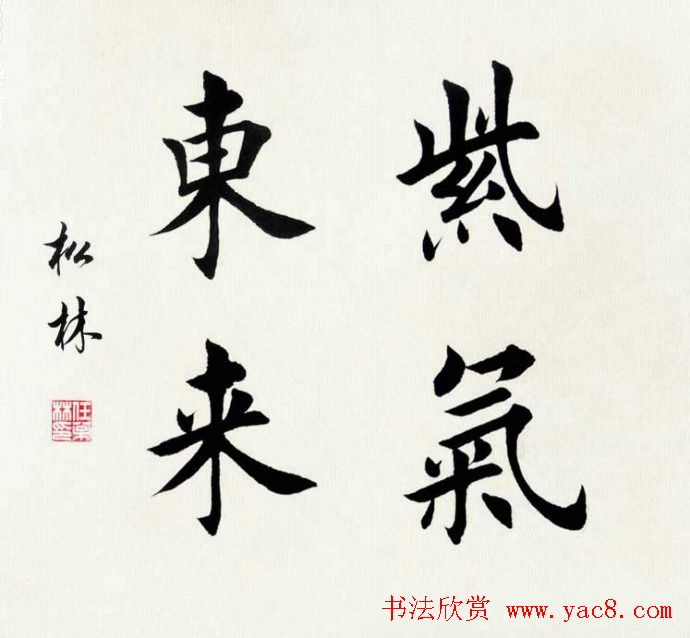 紫氣
東来
松林
书法欣赏 www.yac8.com